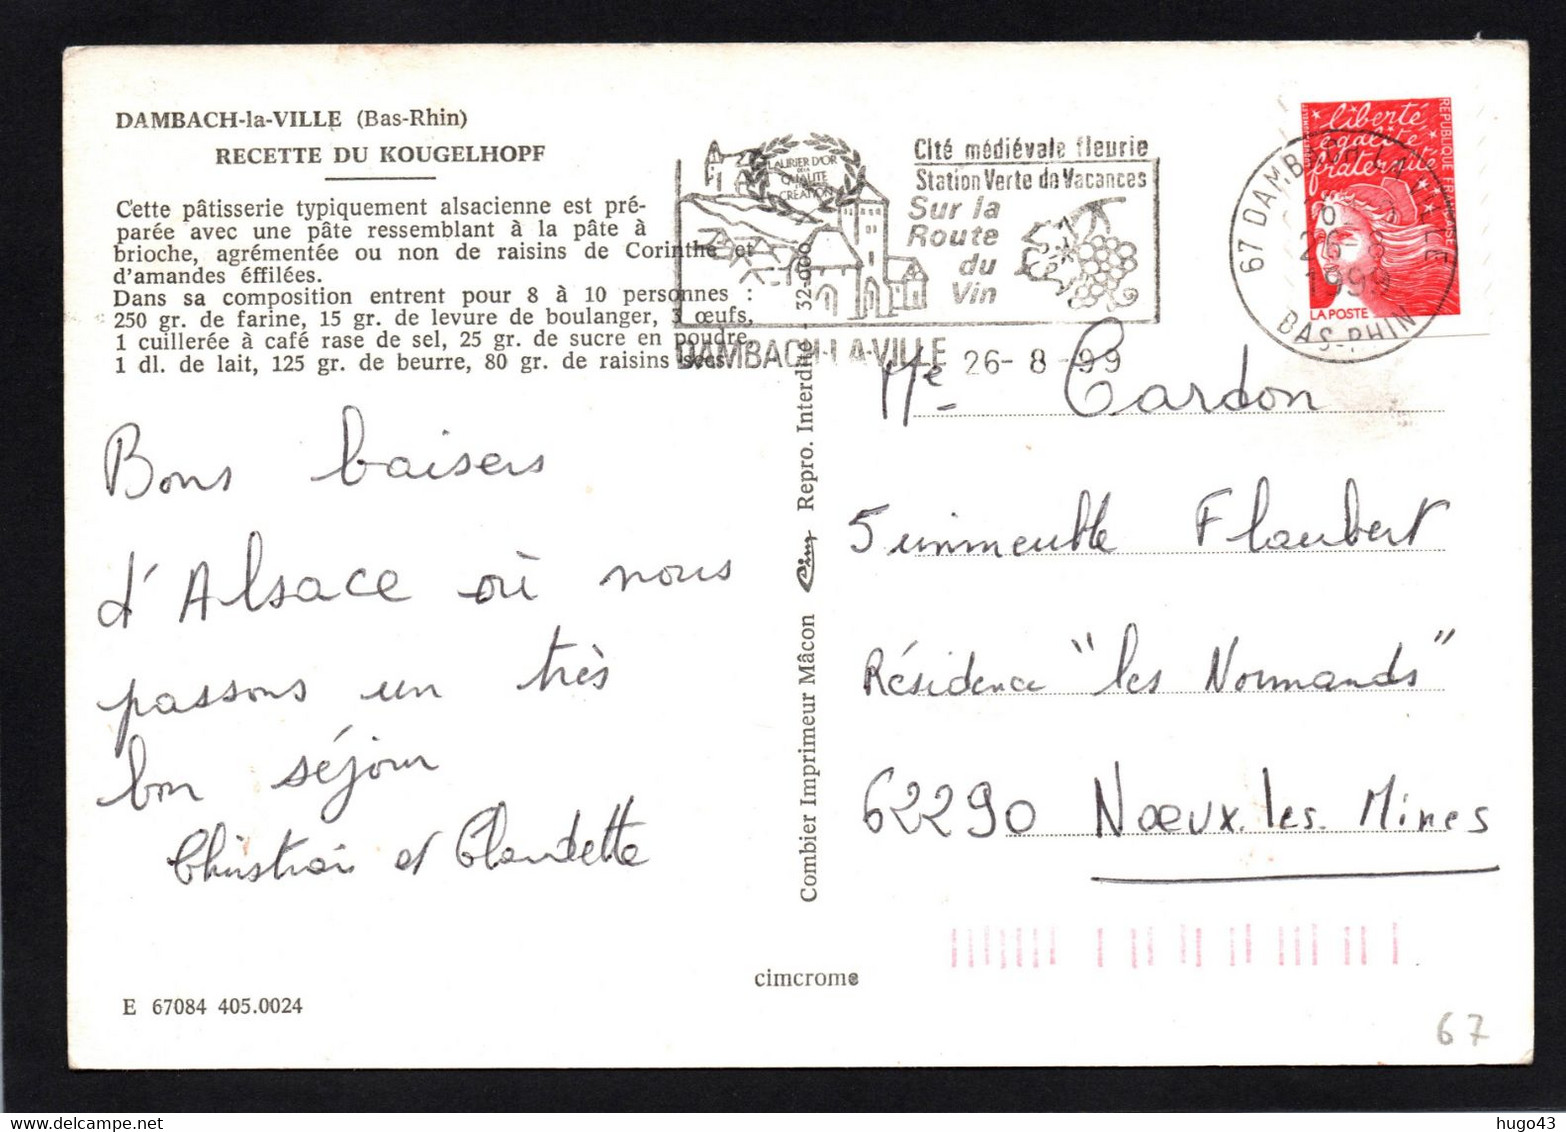 DAMBACH-la-VILLE (Bas-Rhin)
RECETTE DU KOUGELHOPF
Cette pâtisserie typiquement alsacienne est pré-
parée avec une pâte ressemblant à la pâte à
brioche, agrémentée ou non de raisins de Corinthe et
d'amandes éffilées.
Dans sa composition entrent pour 8 à 10 personnes :
250 gr. de farine, 15 gr. de levure de boulanger, 3 œufs,
1 cuillerée à café rase de sel, 25 gr. de sucre en poudre,
1 dl. de lait, 125 gr. de beurre, 80 gr. de raisins secs.
Bons baisers
d'Alsace où nous
passons un très
bon séjour
Christian et Claudette
E 67084 405.0024
Combier Imprimeur Mâcon Cim Repro. Interdite - 32-000
cimcrome
LAURIER D'OR
DE LA
QUALITE
CREATION
Cité médiévale fleurie
Station Verte de Vacances
Sur la
Route
du
Vin
DAMBACH-LA-VILLE 26-8-99
67 DAMBACH LA VILLE
26-8
1999
BAS-RHIN
liberté
égalité
fraternité
REPUBLIQUE FRANÇAISE
LA POSTE
Me Cardon
5 immeuble Flaubert
Résidence "les Normands"
62290 Nœux.les.Mines
67
hugo43